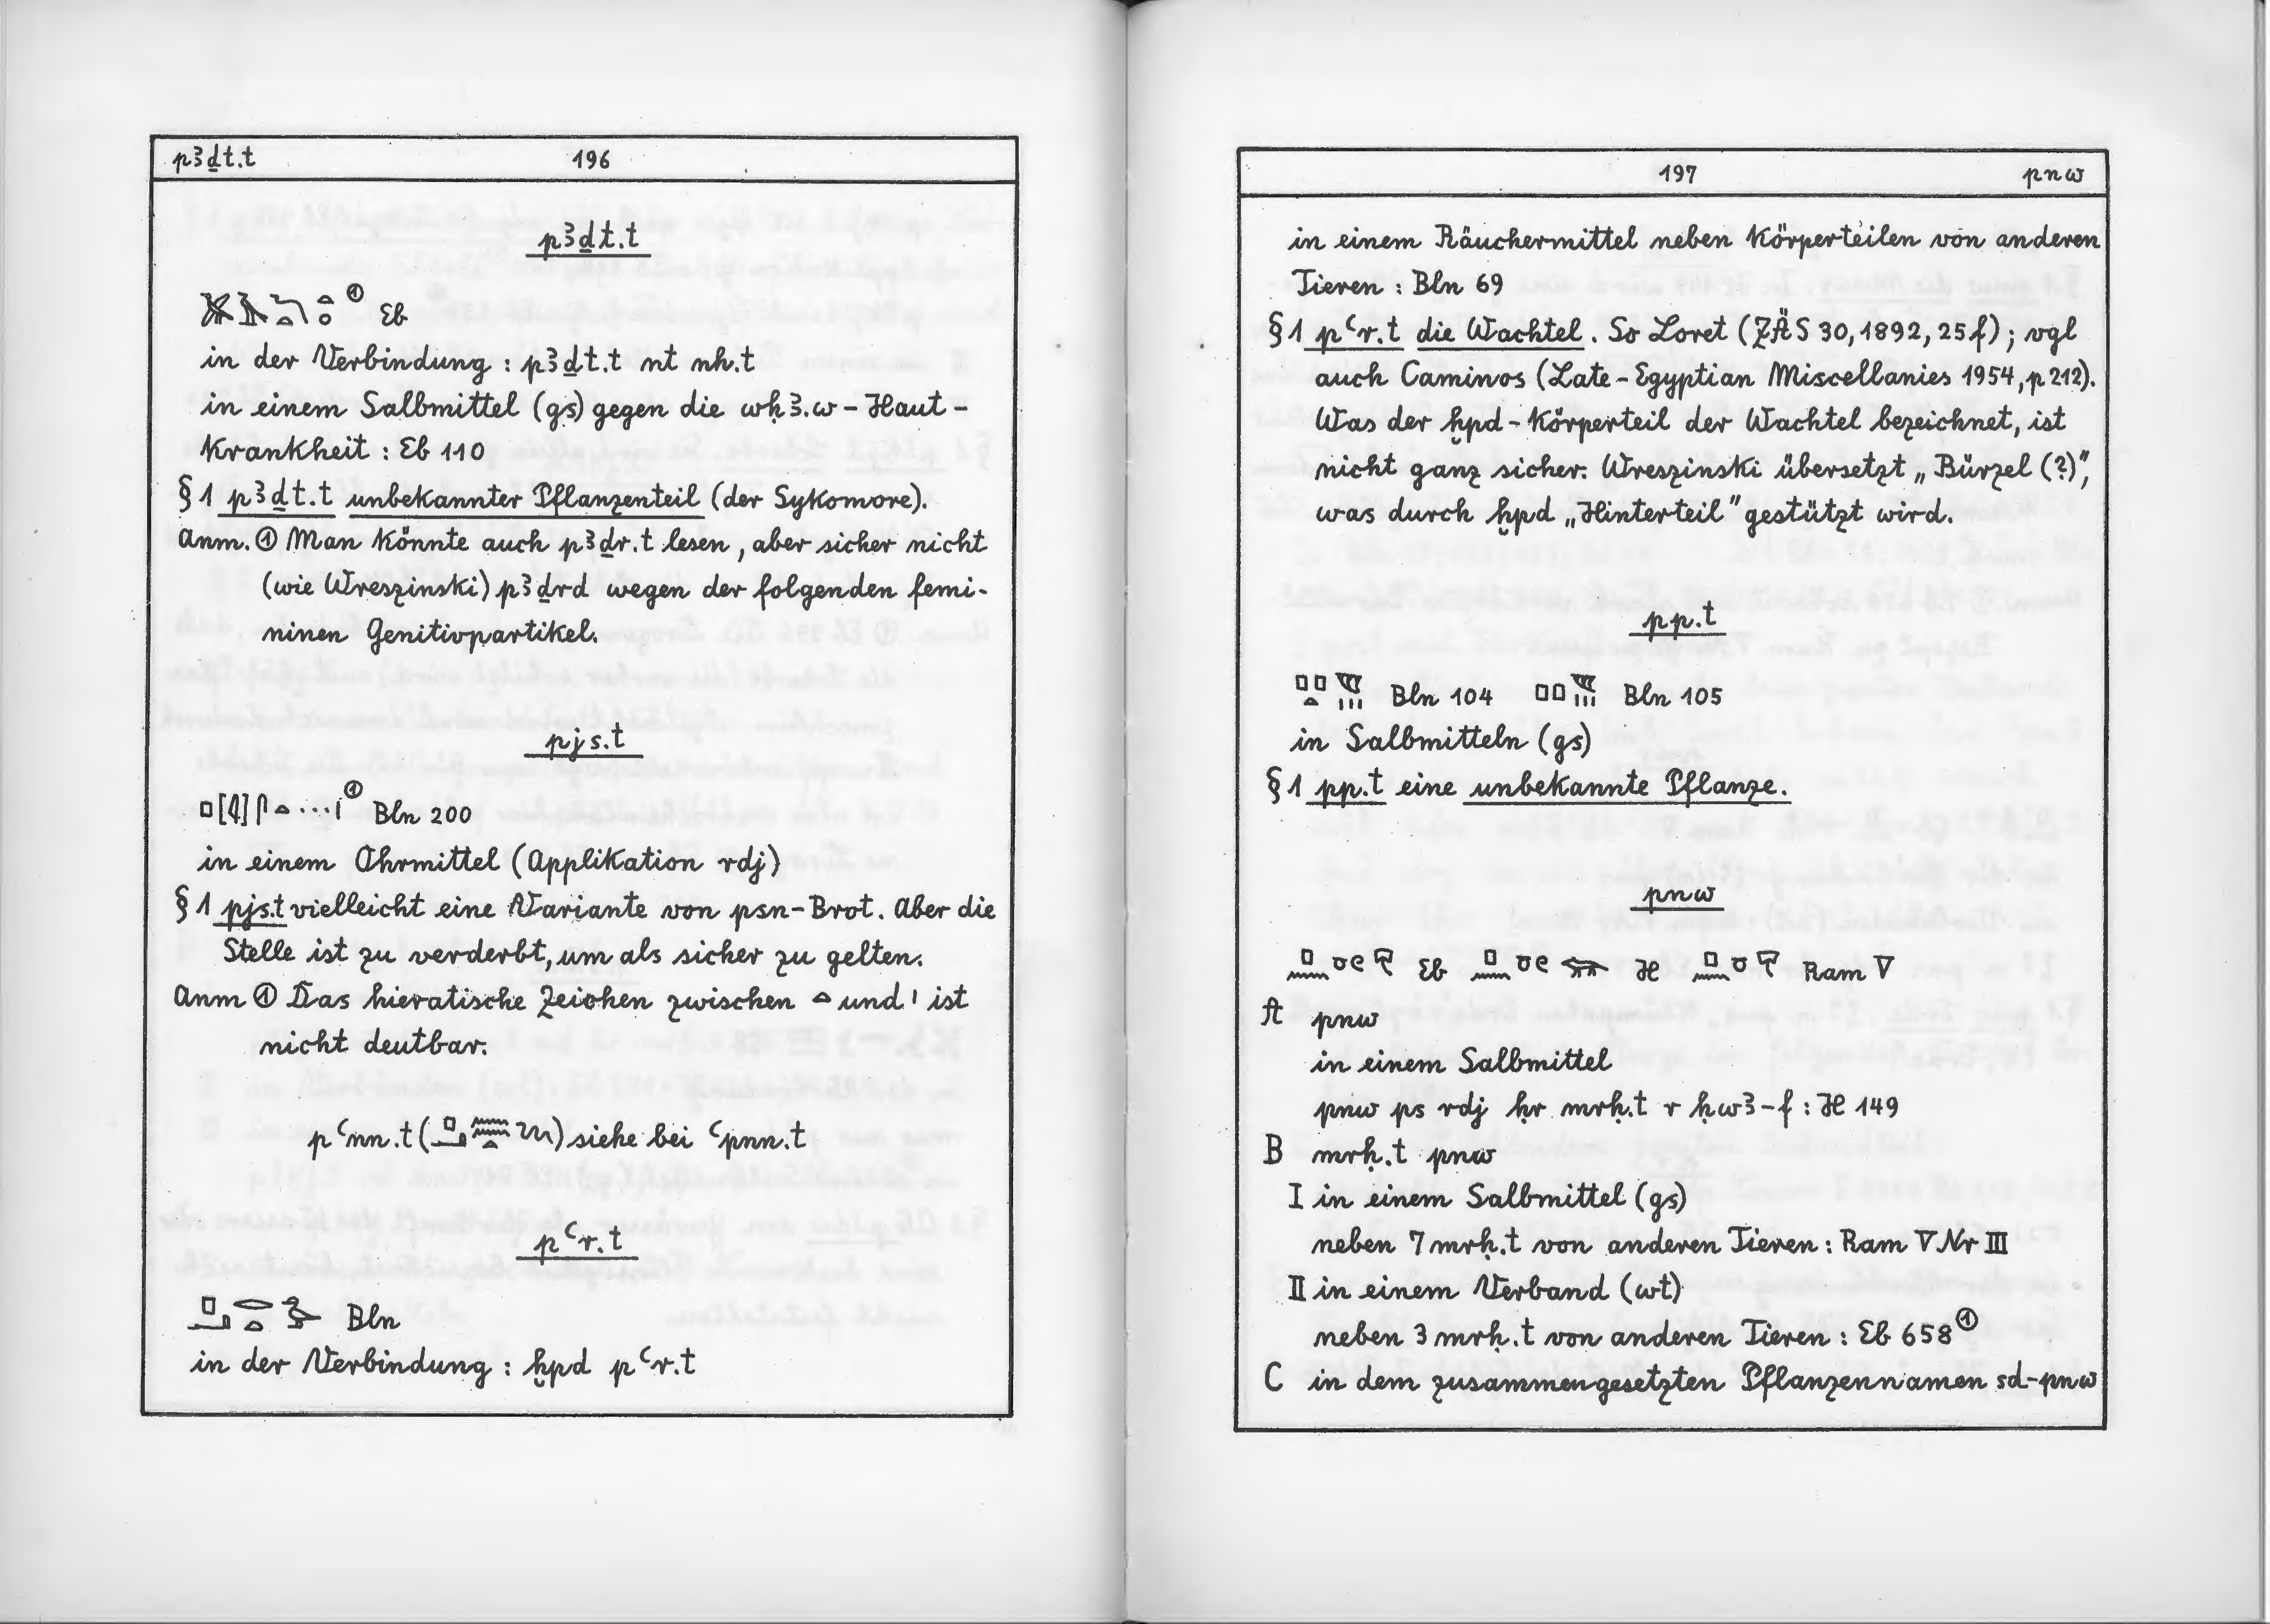 pꜣḏt.t 196
pꜣḏt.t
① Eb
in der Verbindung : pꜣḏt.t nt nh.t
in einem Salbmittel (gs) gegen die wḥꜣ.w - Haut -
Krankheit : Eb 110
§ 1 pꜣḏt.t unbekannter Pflanzenteil (der Sykomore).
Anm. ① Man könnte auch pꜣḏr.t lesen, aber sicher nicht
(wie Wreszinski) pꜣḏrd wegen der folgenden femi-
ninen Genitivpartikel.
pjs.t
① Bln 200
in einem Ohrmittel (Applikation rdj)
§ 1 pjs.t vielleicht eine Variante von psn-Brot. Aber die
Stelle ist zu verderbt, um als sicher zu gelten.
Anm ① Das hieratische Zeichen zwischen 𓏏 und 𓏤 ist
nicht deutbar.
pꜥnn.t ( ) siehe bei ꜥpnn.t
pꜥr.t
Bln
in der Verbindung : ḫpd pꜥr.t
197 pnw
in einem Räuchermittel neben Körperteilen von anderen
Tieren : Bln 69
§ 1 pꜥr.t die Wachtel. So Loret (ZÄS 30, 1892, 25f) ; vgl
auch Caminos (Late-Egyptian Miscellanies 1954, p 212).
Was der ḫpd - Körperteil der Wachtel bezeichnet, ist
nicht ganz sicher. Wreszinski übersetzt „Bürzel (?)",
was durch ḫpd „Hinterteil" gestützt wird.
pp.t
𓊪𓊪𓏏𓆰𓏥 Bln 104 𓊪𓊪𓆰𓏥 Bln 105
in Salbmitteln (gs)
§ 1 pp.t eine unbekannte Pflanze.
pnw
𓊪𓈖𓏌𓏲𓄛 Eb 𓊪𓈖𓏌𓏲 H 𓊪𓈖𓏌𓄛 Ram V
A pnw
in einem Salbmittel
pnw ps rdj ḥr mrḥ.t r ḥwꜣ-f : H 149
B mrḥ.t pnw
I in einem Salbmittel (gs)
neben 7 mrḥ.t von anderen Tieren : Ram V Nr III
II in einem Verband (wt)
neben 3 mrḥ.t von anderen Tieren : Eb 658 ①
C in dem zusammengesetzten Pflanzennamen sd-pnw